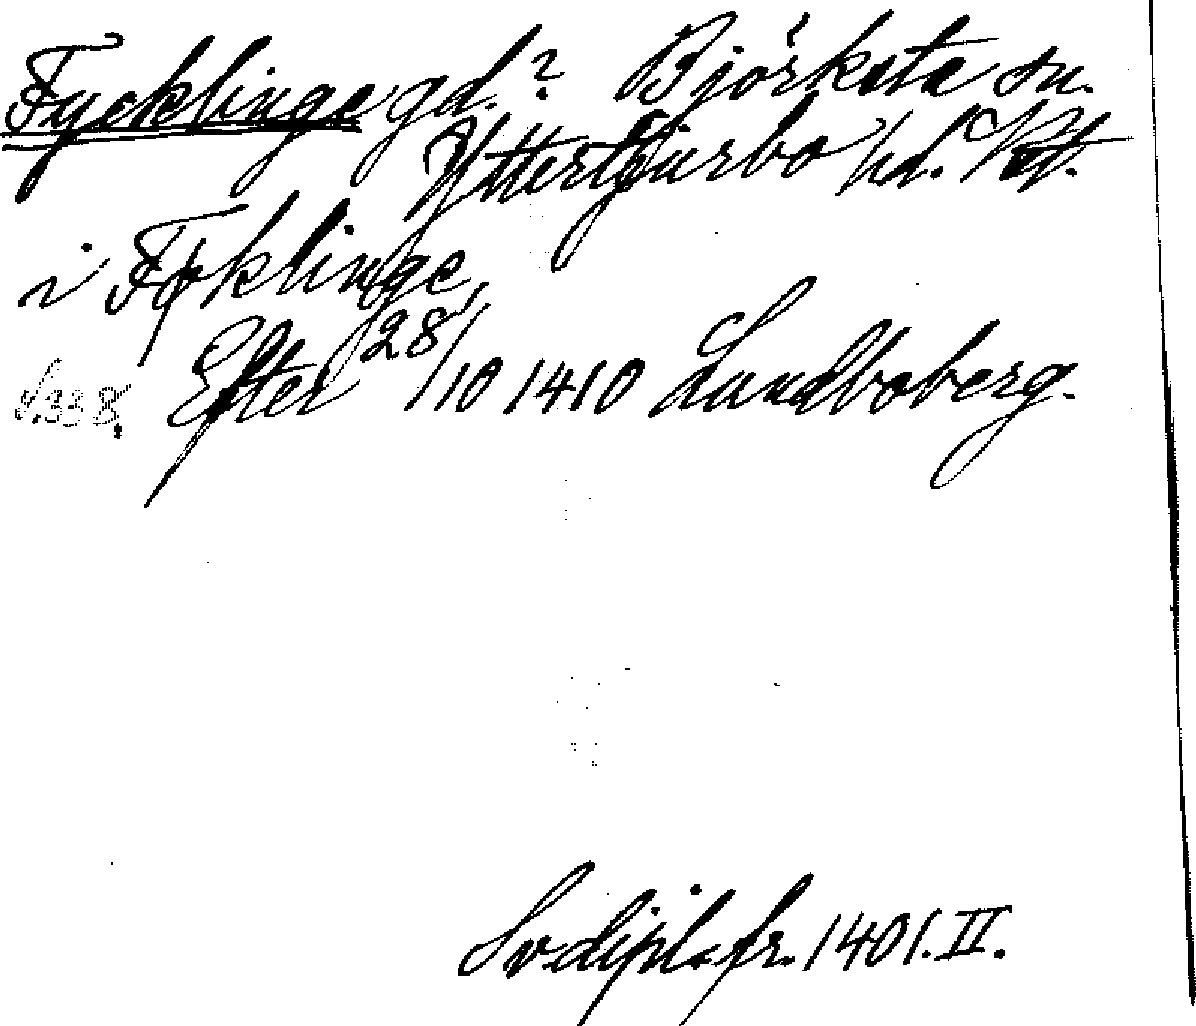 Fycklinge gd.? Björksta sn.
Yttertjurbo hd. Vstm.
i Føklinge,
Efter 28/10 1410 Lundboberg.
s. 338,
Sv. dipl. fr. 1401. II.